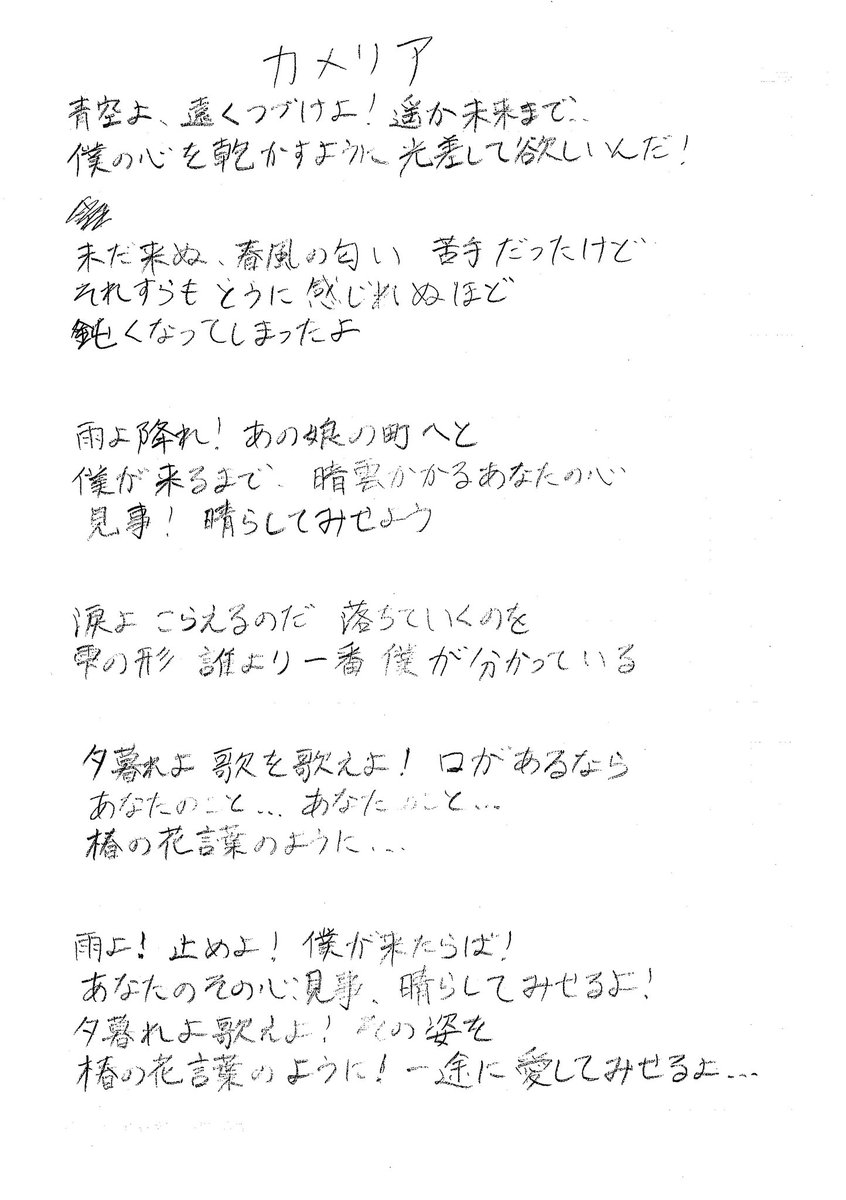 カメリア
青空よ、遠くつづけよ！遥か未来まで..
僕の心を乾かすように 光差して欲しいんだ！
未だ来ぬ、春風の匂い 苦手だったけど
それすらも とうに 感じれぬほど
鈍くなってしまったよ
雨よ降れ！あの娘の町へと
僕が来るまで、暗雲かかるあなたの心
見事！晴らしてみせよう
涙よ こらえるのだ 落ちていくのを
雫の形 誰より一番 僕が分かっている
夕暮れよ 歌を歌えよ！口があるなら
あなたのこと... あなたのこと...
椿の花言葉のように...
雨よ！止めよ！僕が来たらば！
あなたのその心 見事、晴らしてみせるよ！
夕暮れよ歌えよ！の姿を
椿の花言葉のように！一途に愛してみせるよ...